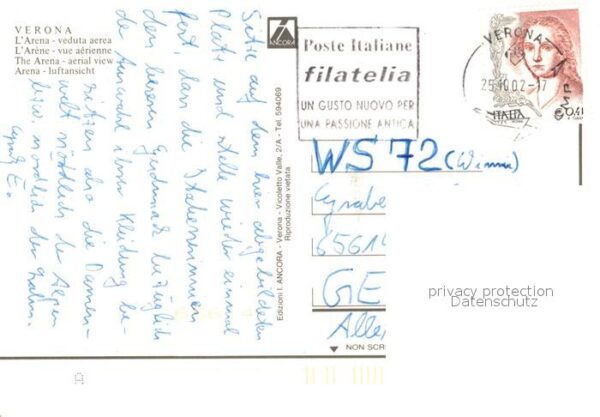 VERONA
L'Arena - veduta aerea
L'Arène - vue aérienne
The Arena - aerial view
Arena - luftansicht
Sitze auf dem hier abgebildeten
Platz und stelle wieder einmal
fest, dass die Italienerinnen
den besseren Geschmack bezüglich
der Auswahl ihrer Kleidung be-
sitzen als die Damen-
welt nördlich der Alpen
bzw. nördlich der
E.
ANCORA
Edizioni I. ANCORA - Verona - Vicoletto Valle, 2/A - Tel. 594069
Riproduzione vietata
Poste Italiane
filatelia
UN GUSTO NUOVO PER
UNA PASSIONE ANTICA
VERONA
25.10.02-17
CMP
ITALIA
€ 0,41
WS 72
65614
GE
Alle
NON SCRI
A
privacy protection
Datenschutz